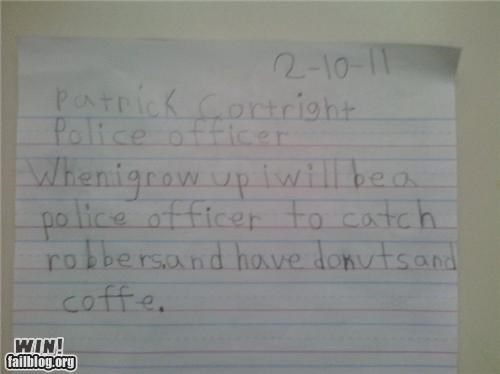 2-10-11
Patrick Cortright
Police officer
When i grow up i will be a
police officer to catch
robbers.and have donuts and
coffe.
WIN!
failblog.org